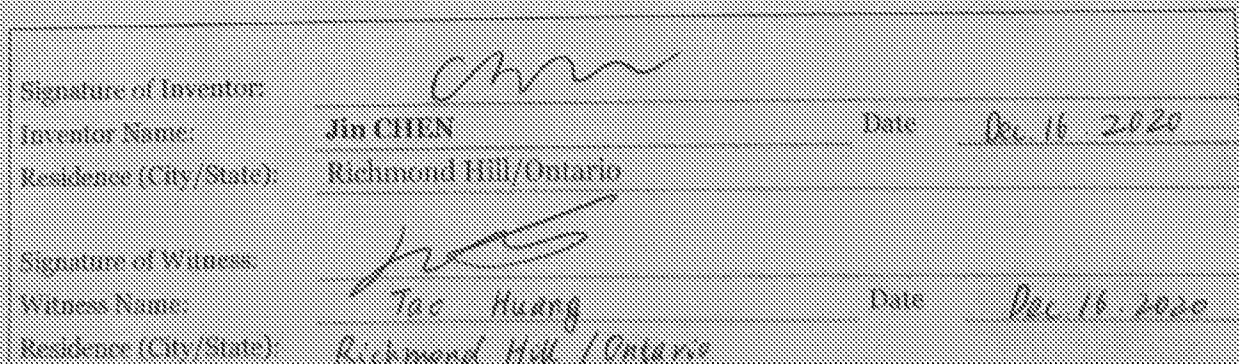 Signature of Inventor: Chen
Inventor Name: Jin CHEN Date Dec. 16 2020
Residence (City/State): Richmond Hill/Ontario
Signature of Witness:
Witness Name: Tao Huang Date Dec. 16. 2020
Residence (City/State): Richmond Hill / Ontario